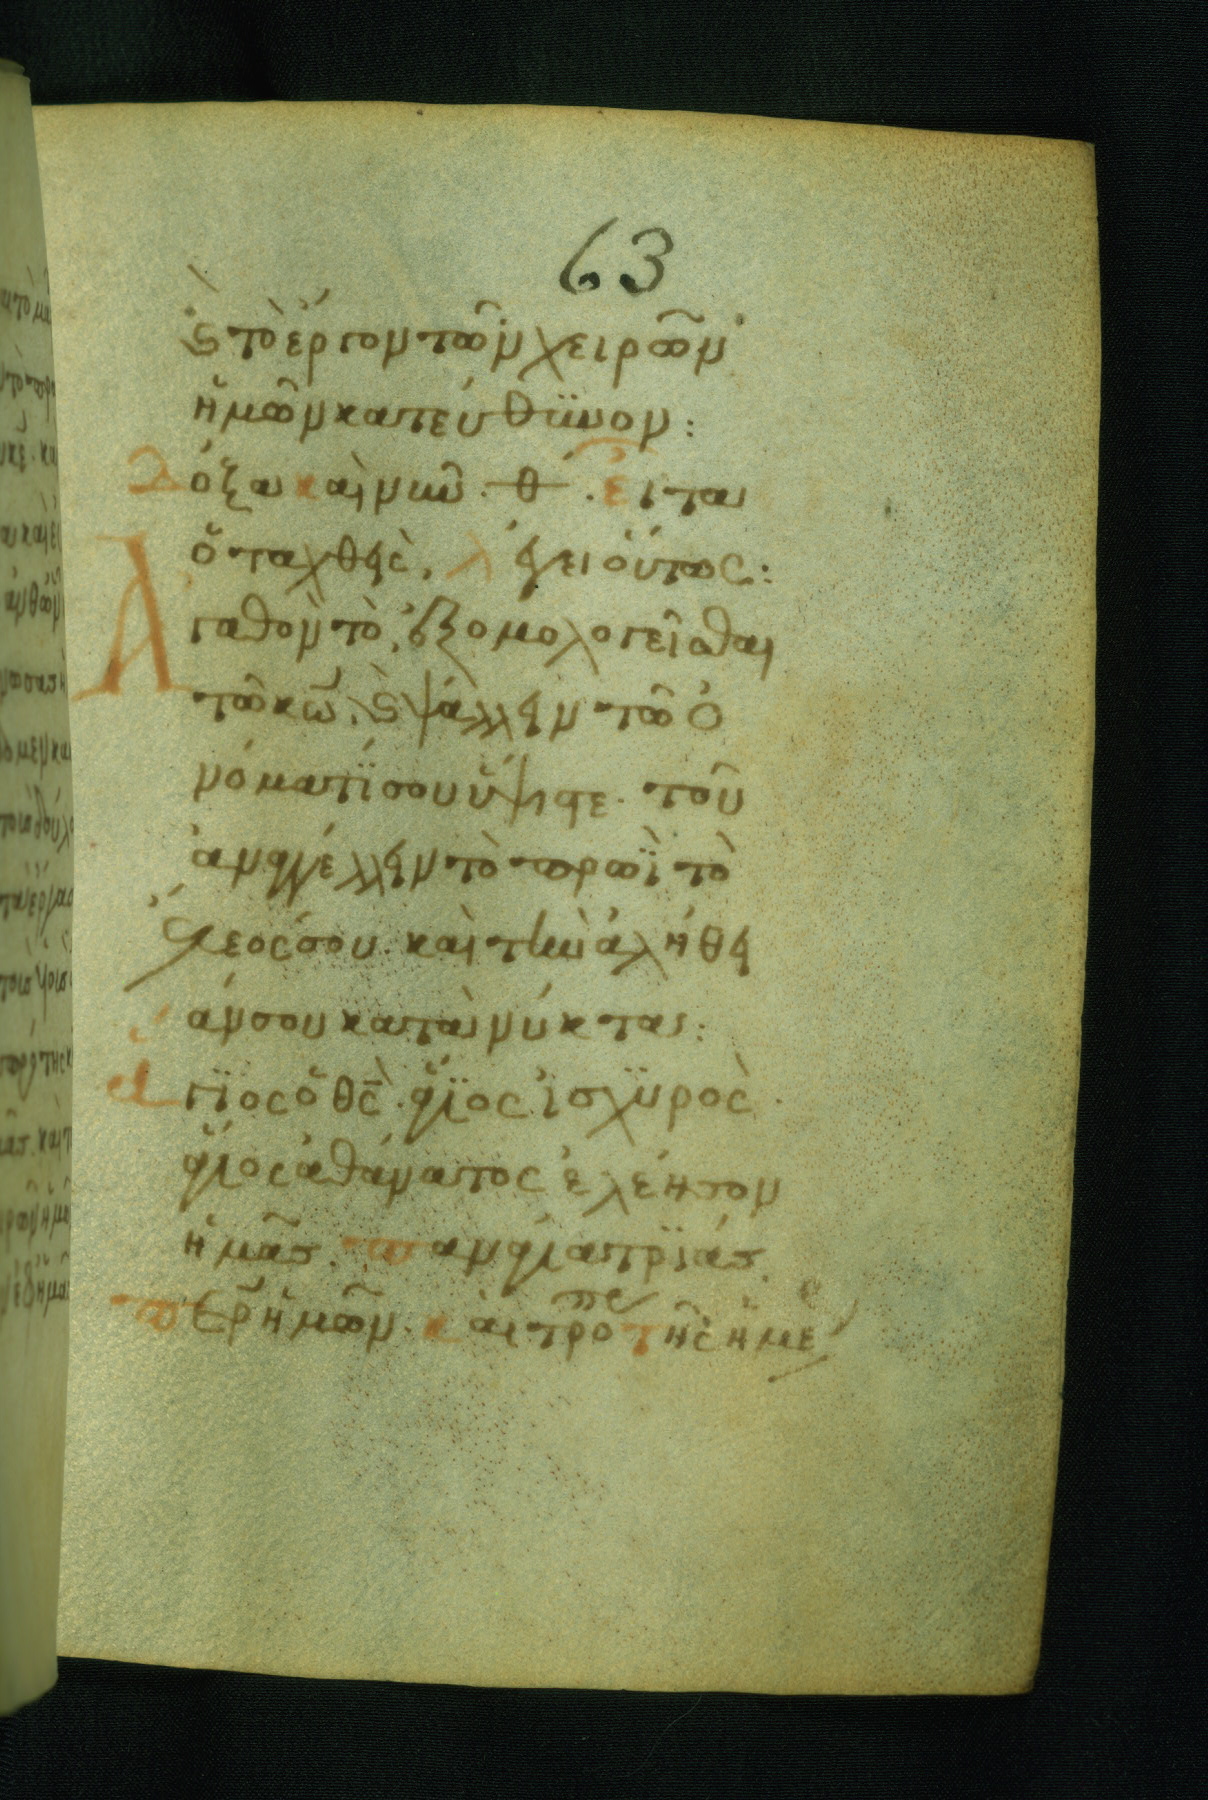 63
ϛ τὸ ἔργον τῶν χειρῶν
ἡμῶν κατεύθϋνον:
Δόξα καὶ νῦν. Θ. εἶτα
ὁ ταχθεὶς, λέγει οὕτως:
Ἀγαθὸν τὸ ἐξομολογεῖσθαι
τῶ κω̅. ϛ ψάλλειν τῶ ὀ
νόματί σου ὕψιστε. τοῦ
ἀναγγέλλειν τὸ πρωῒ τὸ
ἔλεος σου. καὶ τὴν ἀλήθει
αν σου κατὰ νύκτα:
Ἅγϊος ὁ θς̅. ἅγϊος ἰσχϋρὸς.
ἅγϊος ἀθάνατος ἐλέησον
ἡμᾶς. παναγία τρϊάς.
περ ἡμῶν. καὶ τρο τῆς ἡμέ